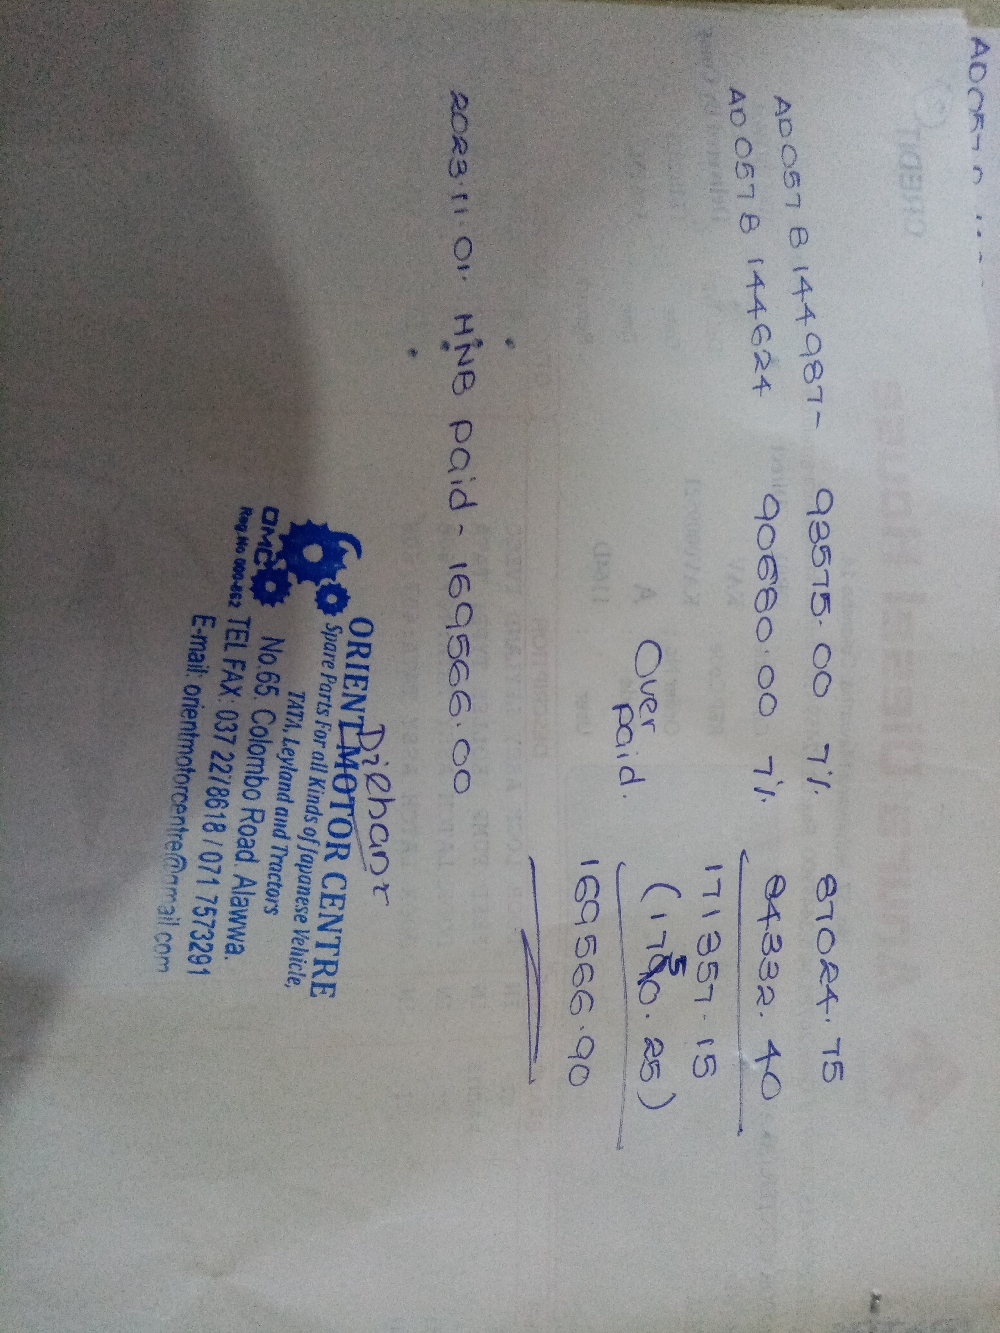 AD057B144987- 93575.00 7% 87024.75
AD057B144624 90680.00 7% 84332.40
171357.15
Over paid. (1790.25)
5
169566.90
2023.11.01. HNB paid - 169566.00
Dilhani
ORIENT MOTOR CENTRE
Spare Parts For all Kinds of Japanese Vehicle,
TATA, Leyland and Tractors
OMC No.65. Colombo Road, Alawwa.
Reg.No 000-862 TEL FAX: 037 2278618 / 071 7573291
E-mail: orientmotorcentre@gmail.com